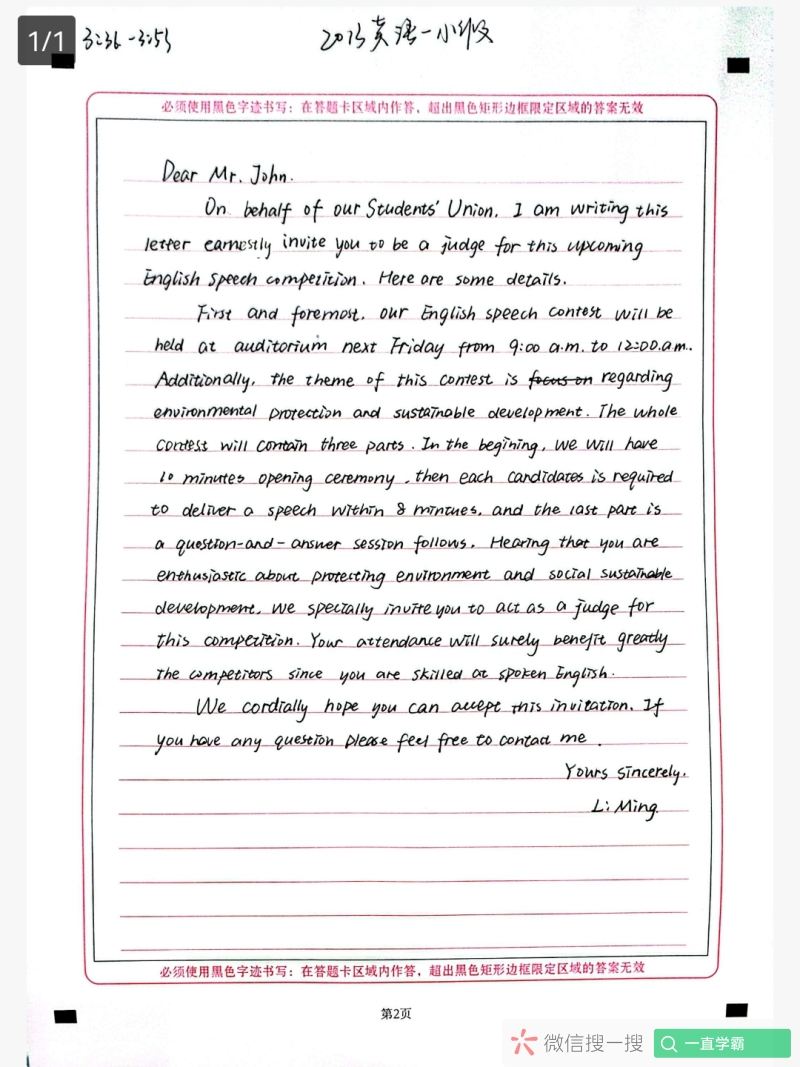 1/1
3:36-3:53
2013英语一小作文
必须使用黑色字迹书写：在答题卡区域内作答，超出黑色矩形边框限定区域的答案无效
Dear Mr. John.
On behalf of our Students' Union. I am writing this
letter earnestly invite you to be a judge for this upcoming
English speech competition. Here are some details.
First and foremost, our English speech contest will be
held at auditorium next Friday from 9:00 a.m. to 12:00.am.
Additionally, the theme of this contest is focus on regarding
environmental protection and sustainable development. The whole
contest will contain three parts. In the begining, we will have
10 minutes opening ceremony, then each candidates is required
to deliver a speech within 8 mintues, and the last part is
a question-and-answer session follows. Hearing that you are
enthusiastic about protecting environment and social sustainable
development, we specially invite you to act as a judge for
this competition. Your attendance will surely benefit greatly
the competitors since you are skilled at spoken English.
We cordially hope you can accept this invitation. If
you have any question please feel free to contact me.
Yours sincerely.
Li Ming.
必须使用黑色字迹书写：在答题卡区域内作答，超出黑色矩形边框限定区域的答案无效
第2页
微信搜一搜
一直学霸